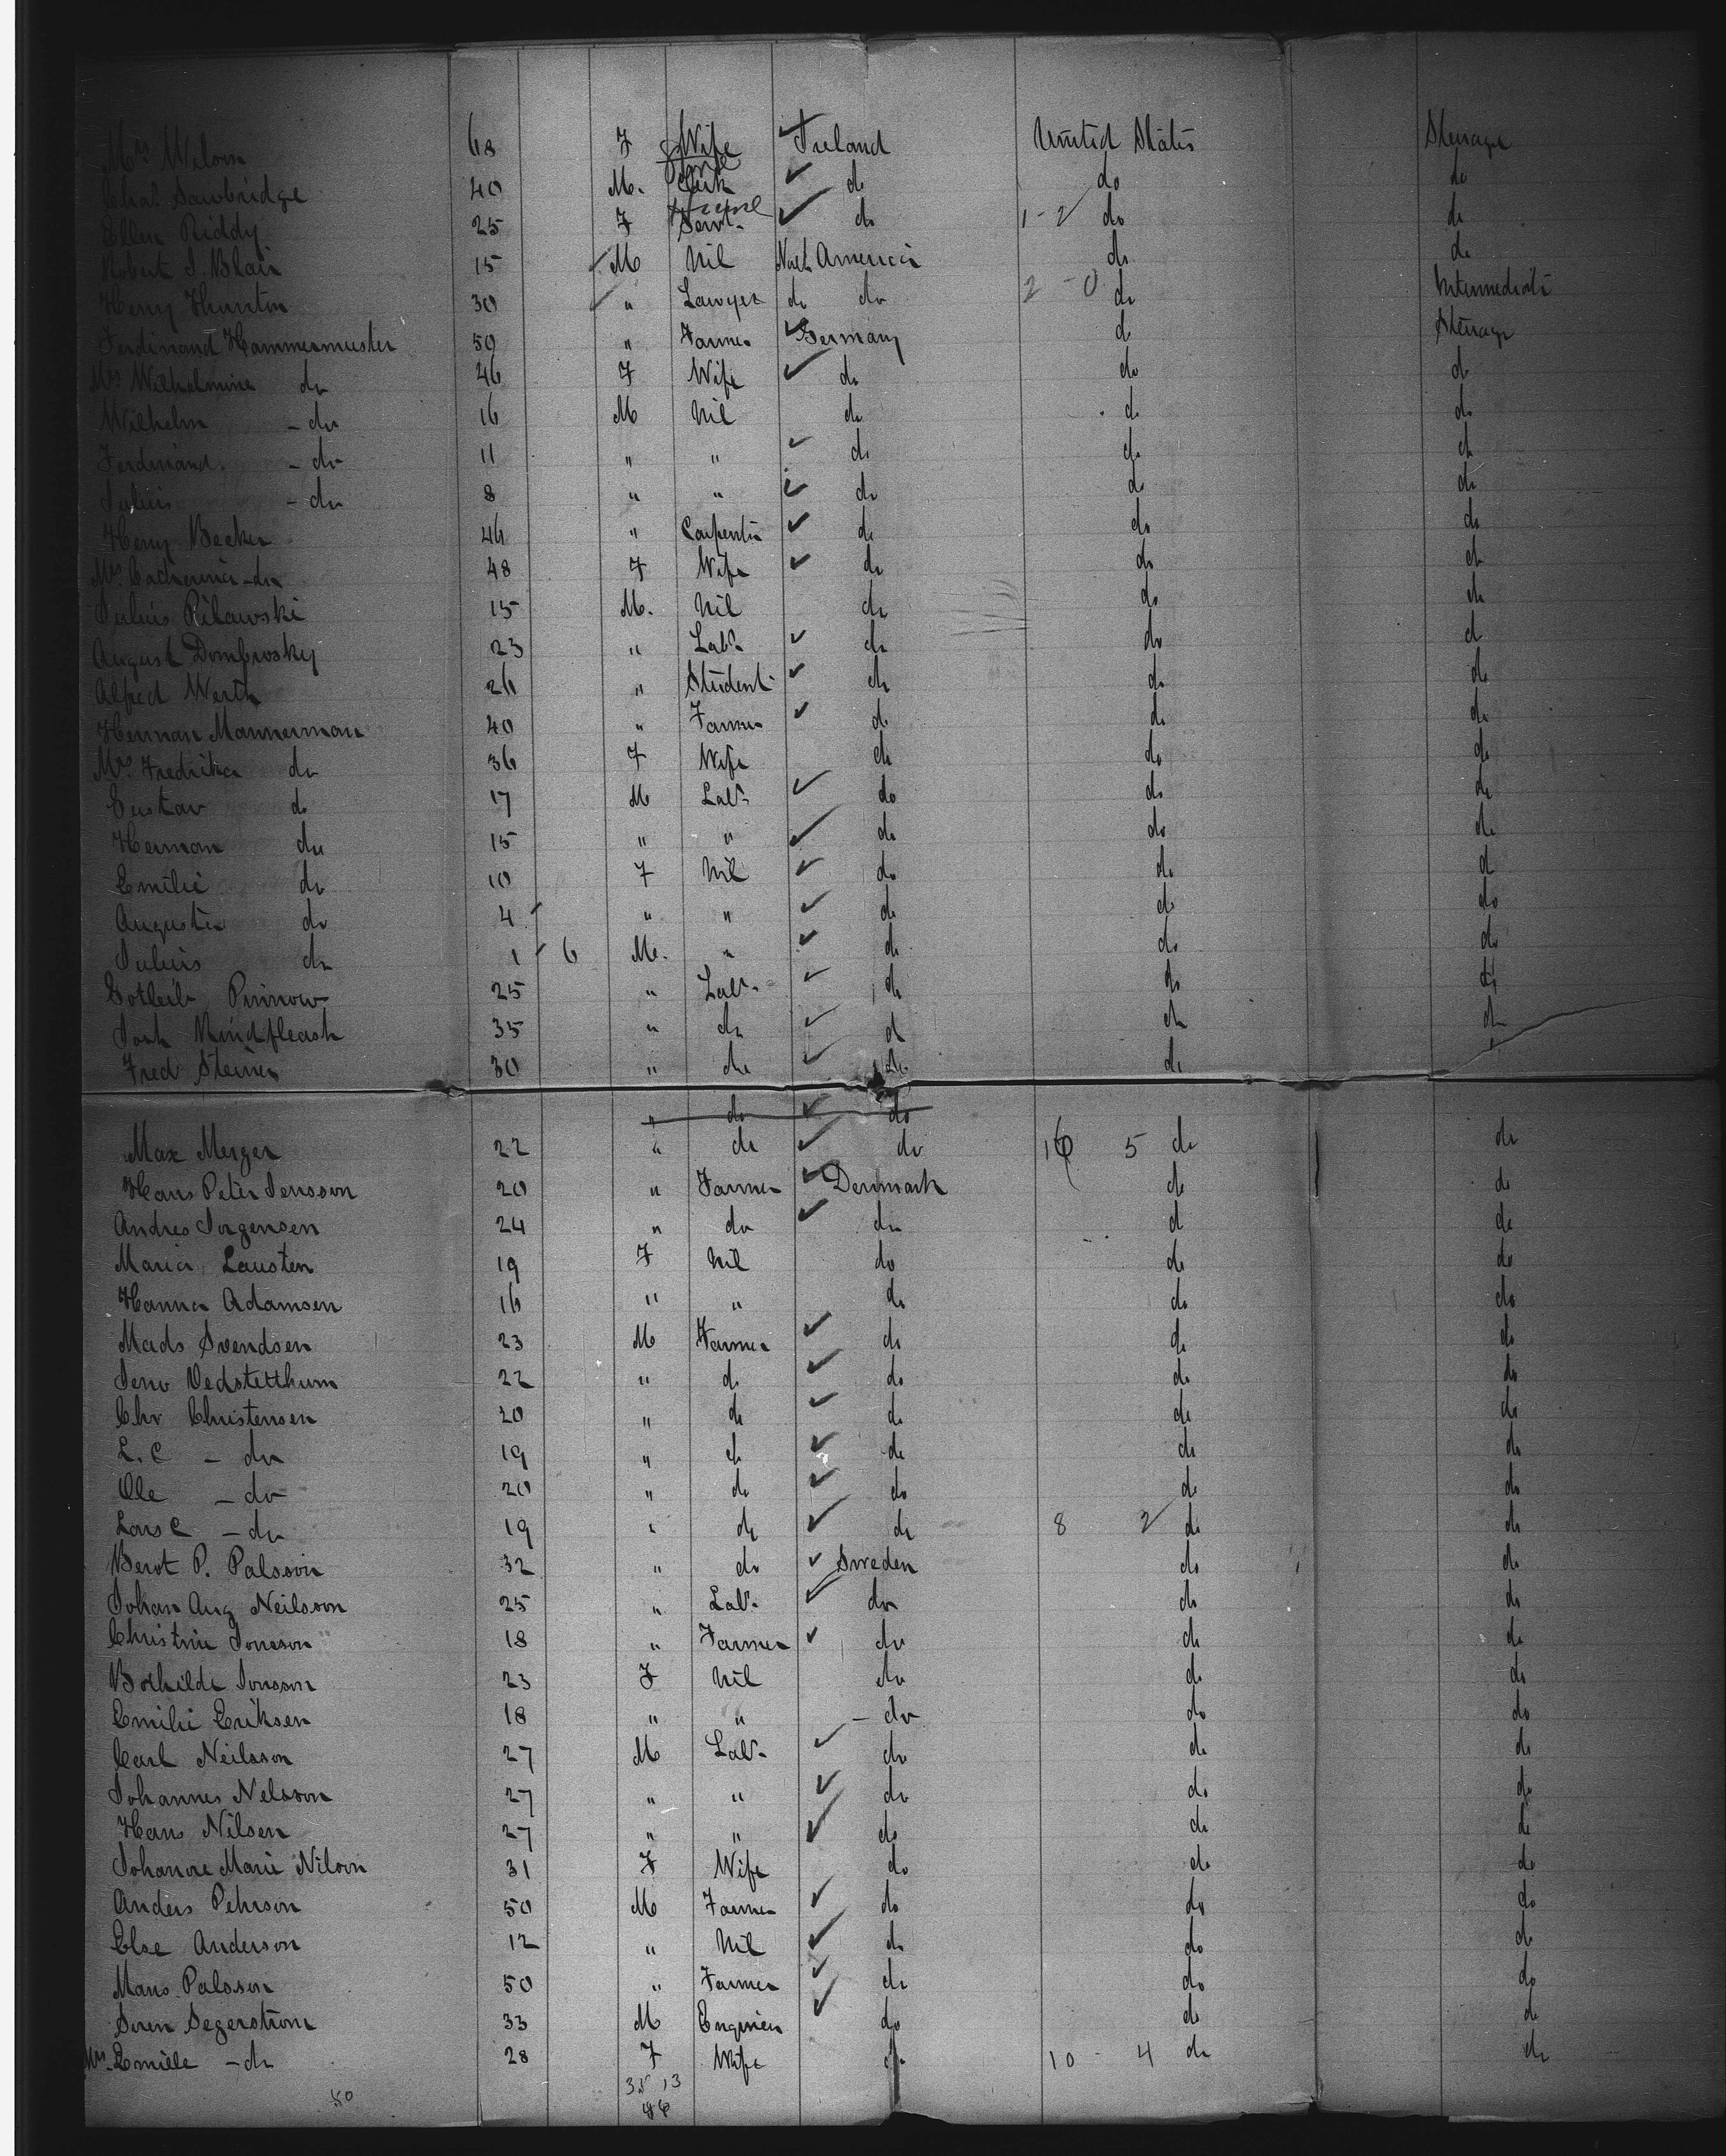 Mrs Wilson 68 F Wife Ireland United States Steerage
Chas Sawbridge 40 M. Clerk do do do
Ellen Riddy 25 F Servt. do 1-2 do do
Robert J. Blair 15 M Nil North America do do
Henry Thurston 30 " Lawyer do do 2-0 do Intermediate
Ferdinand Hammermeister 50 " Farmer Germany do Steerage
Mrs Wilhelmine do 46 F Wife do do do
Wilhelm - do 16 M Nil do do do
Ferdinand - do 11 " " do do do
Julius - do 8 " " do do do
Henry Becker 46 " Carpenter do do do
Mrs Catherine - do 48 F Wife do do do
Julius Pilawski 15 M. Nil do do do
August Dombrosky 23 " Labr. do do do
Alfred Werth 26 " Student do do do
Herman Mannerman 40 " Farmer do do do
Mrs Fredrika do 36 F Wife do do do
Gustav do 17 M Labr. do do do
Herman do 15 " " do do do
Emilie do 10 F Nil do do do
Augusta do 4 " " do do do
Julius do 1 6 M. " do do do
Gotleib Pinnow 25 " Labr. do do do
Rindfleash 35 " do do do do
Fred Steiner 30 " do do do
" do do
Max Merger 22 " do do 16 5 do do
Hans Peter Jensson 20 " Farmer Denmark do do
Andres Jorgensen 24 " do do do do
Maria Lausten 19 F Nil do do do
Hanna Adamsen 16 " " do do do
Mads Svendsen 23 M Farmer do do do
Jens Vedstetthum 22 " do do do do
Chr Christensen 20 " do do do do
L. C - do 19 " do do do do
Ole - do 20 " do do do do
Lars C - do 19 " do do 8 2 do do
Berot P. Palsson 32 " do Sweden do do
Johan Aug Neilsson 25 " Labr. do do do
Christine Jonsson 18 " Farmer do do do
Bothilde Jonsson 23 F Nil do do do
Emilie Eriksen 18 " " - do do do
Carl Neilsson 27 M Labr. do do do
Johannes Nelsson 27 " " do do do
Hans Nilsen 27 " " do do do
Johanne Marie Nilson 31 F Wife do do do
Anders Pehrson 50 M Farmer do do do
Else Anderson 12 " Nil do do do
Mans Palsson 50 " Farmer do do do
Soren Segerstrom 33 M Engineer do do do
Mrs. Emilie - do 28 F Wife do 10 - 4 do do
35 13
50